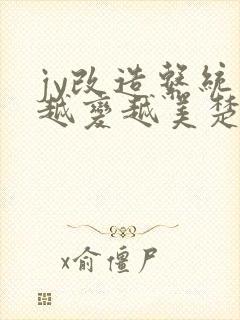 jy改造系統
越變越美楚
x俞僵尸